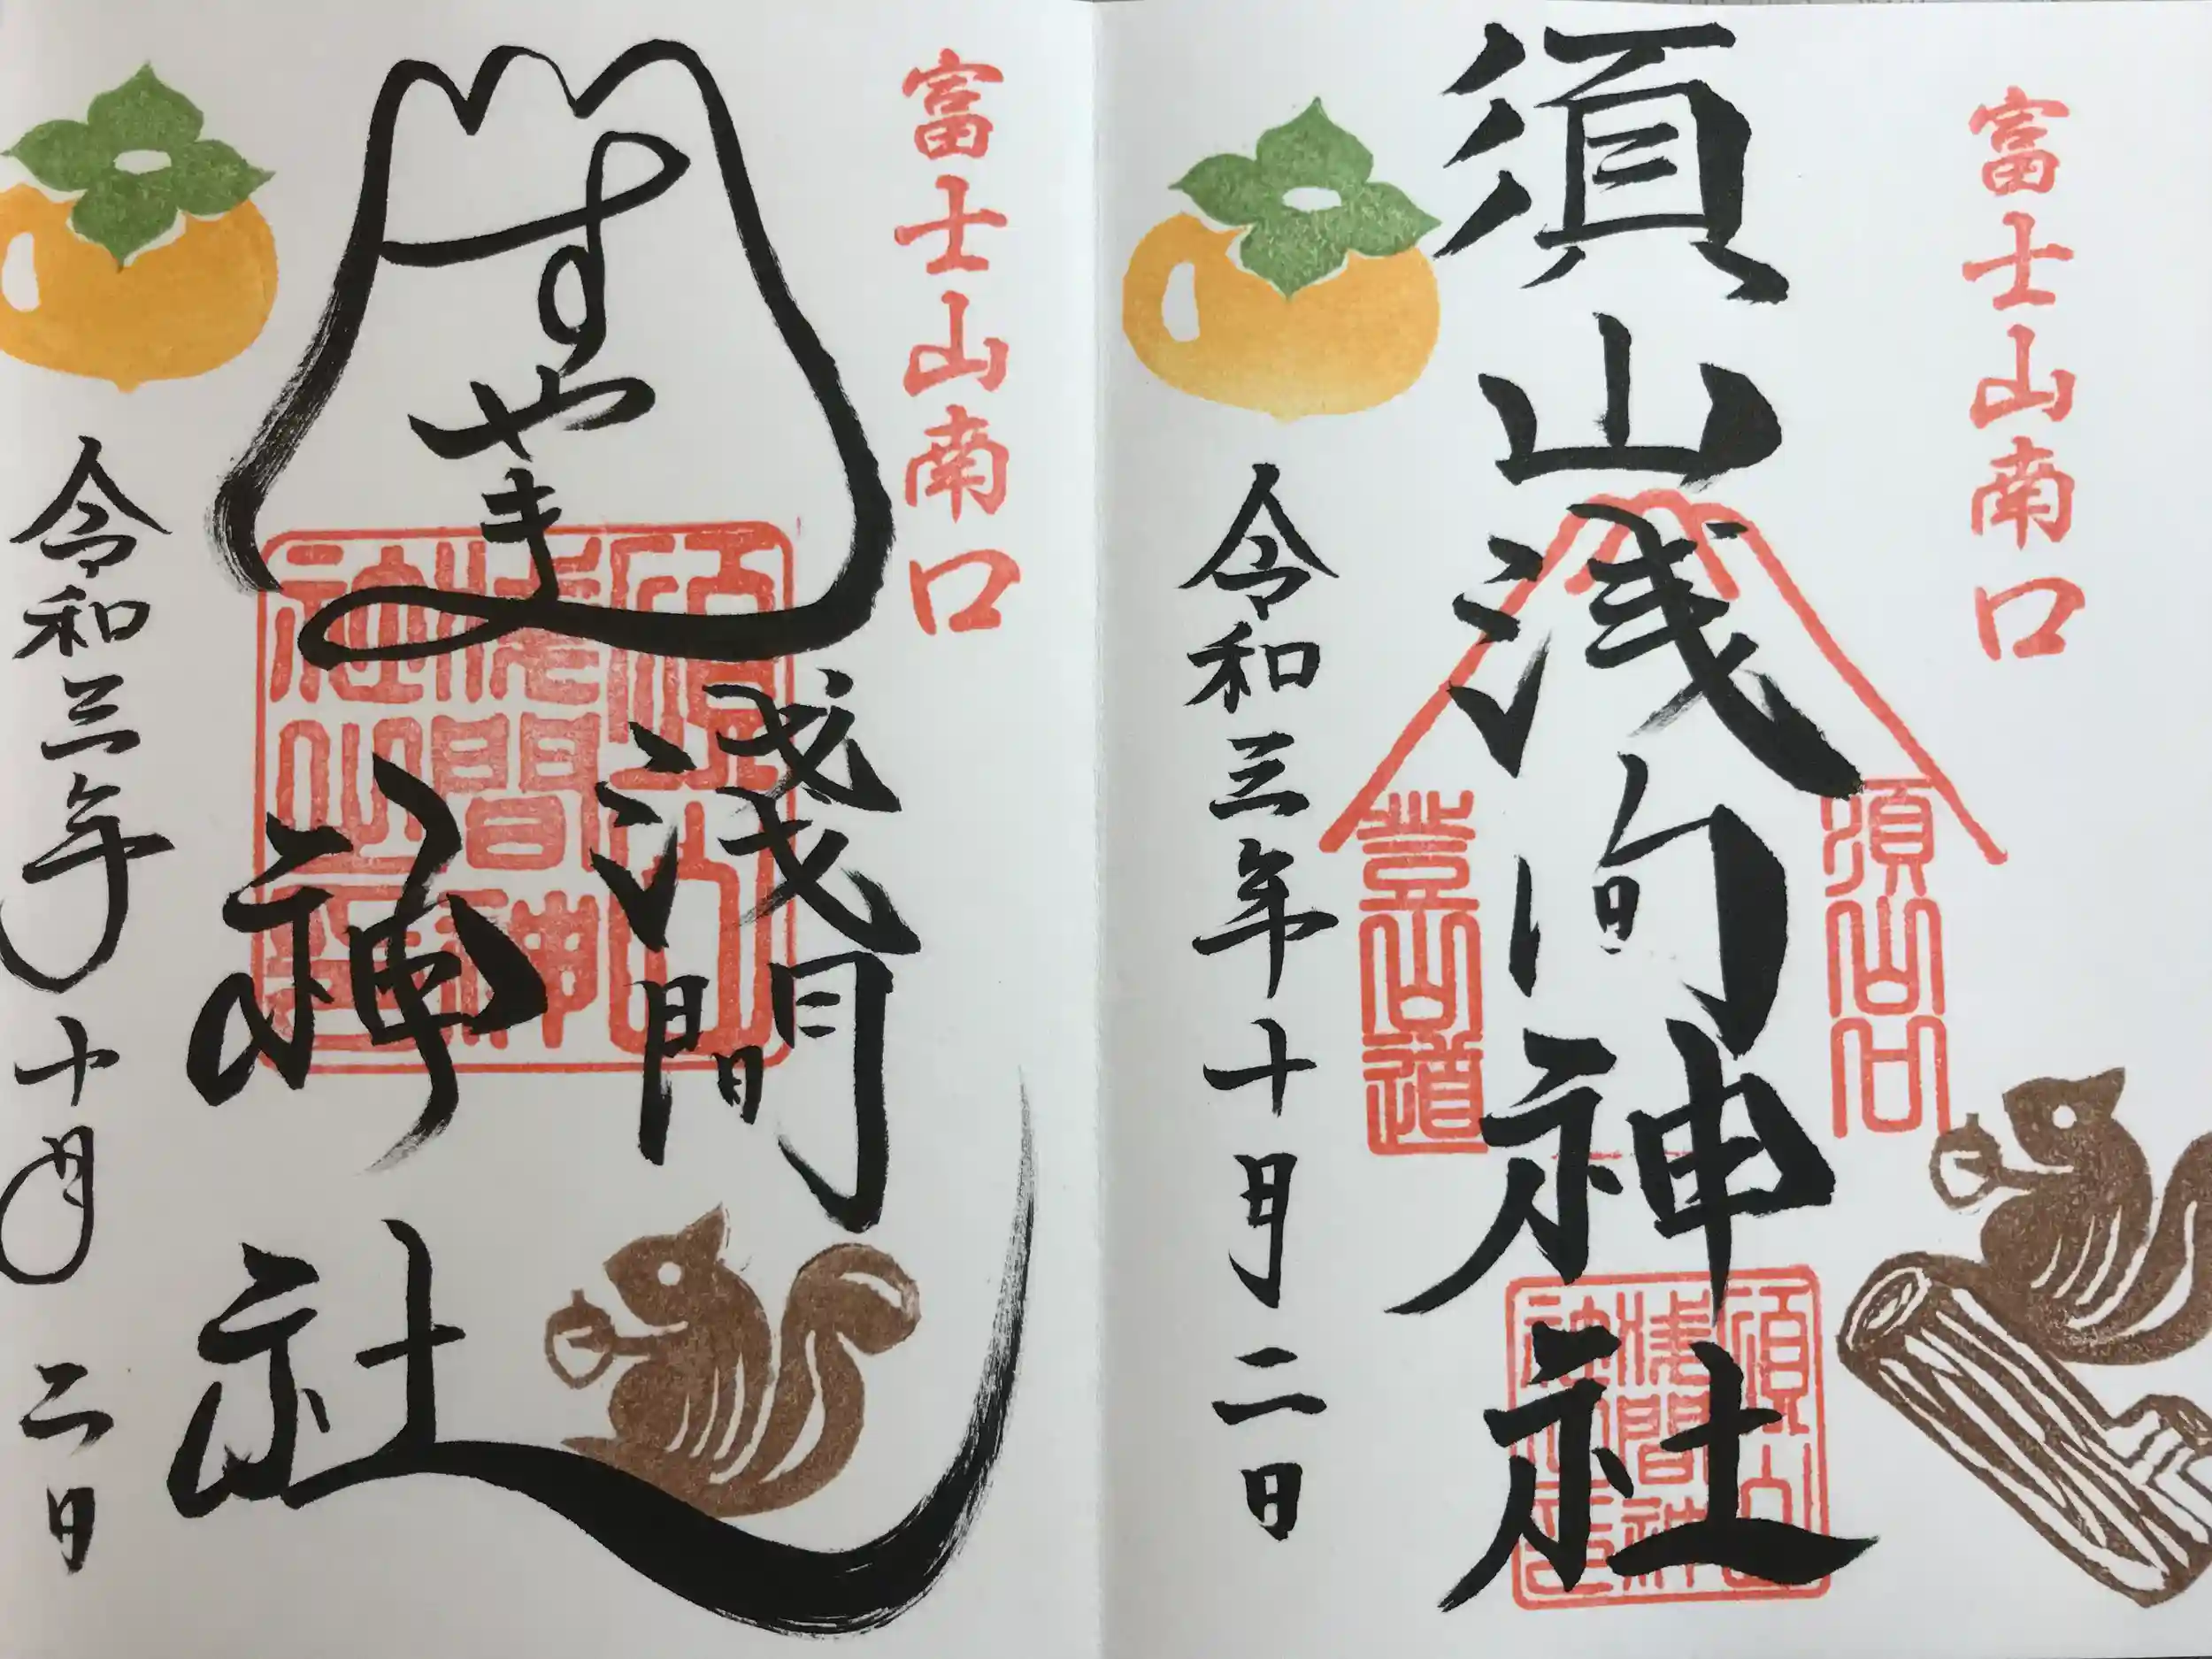 富士山南口
須山浅间神社
須山口
登山道
須山
浅間神
社之印
令和三年十月二日
富士山南口
すやま
淺間
神社
須山
浅間神
社之印
令和三年十月二日